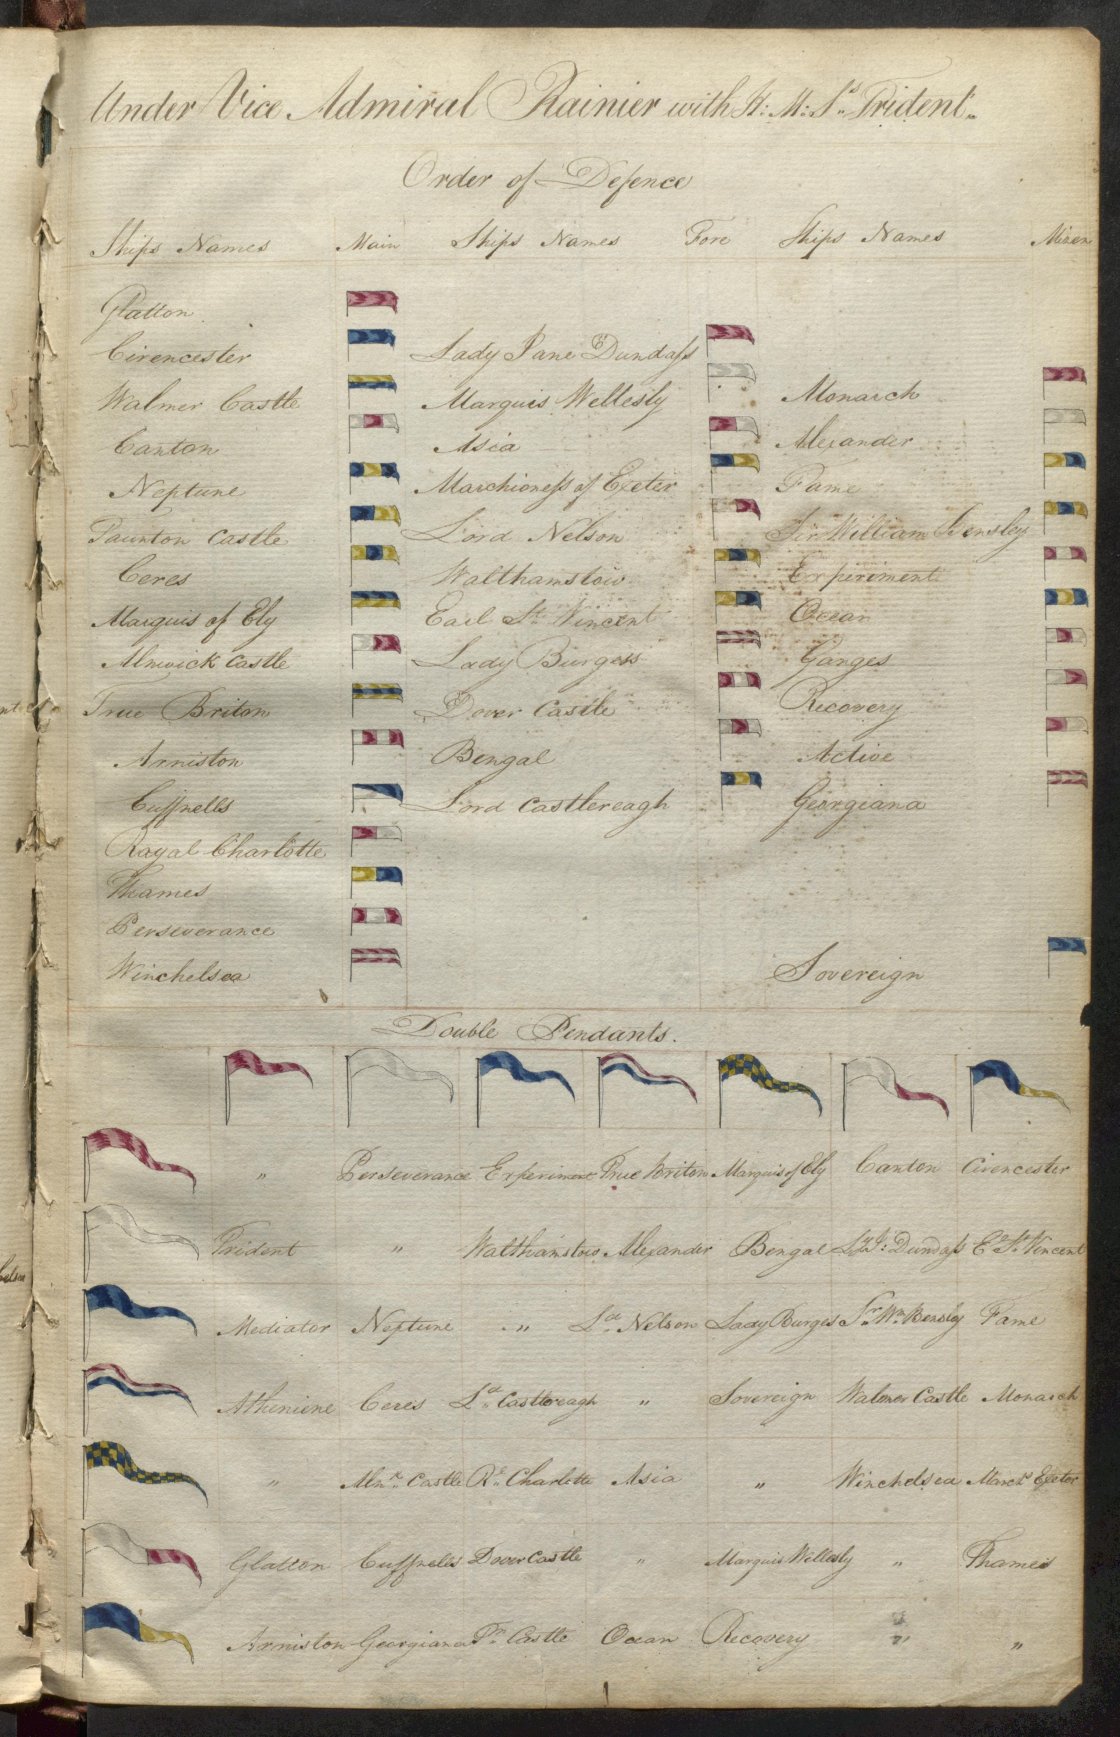 Under Vice Admiral Rainier with H: M: Sp. Trident.
Order of Defence
Ships Names Main Ships Names Fore Ships Names Mizen
Glatton
Cirencester Lady Jane Dundass
Walmer Castle Marquis Wellesly Monarch
Canton Asia Alexander
Neptune Marchioness of Exeter Fame
Taunton Castle Lord Nelson Sir William Bensley
Ceres Walthamstow Experiment
Marquis of Ely Earl St. Vincent Ocean
Alnwick Castle Lady Burgess Ganges
True Briton Dover Castle Recovery
Arniston Bengal Active
Cuffnells Lord Castlereagh Georgiana
Royal Charlotte
Thames
Perseverance
Winchelsea Sovereign
Double Pendants.
" Perseverance Experiment True Briton Marquis of Ely Canton Cirencester
Trident " Walthamstow Alexander Bengal Ly J: Dundass El St Vincent
Mediator Neptune " Ld. Nelson Lady Burges Sr. Wm Bensley Fame
Atheniene Ceres Ld. Castlereagh " Sovereign Walmer Castle Monarch
" Alnk. Castle Rl. Charlotte Asia " Winchelsea Marchs Exeter
Glatton Cuffnells Dover Castle " Marquis Wellesly " Thames
Arniston Georgiana Tn Castle Ocean Recovery " "